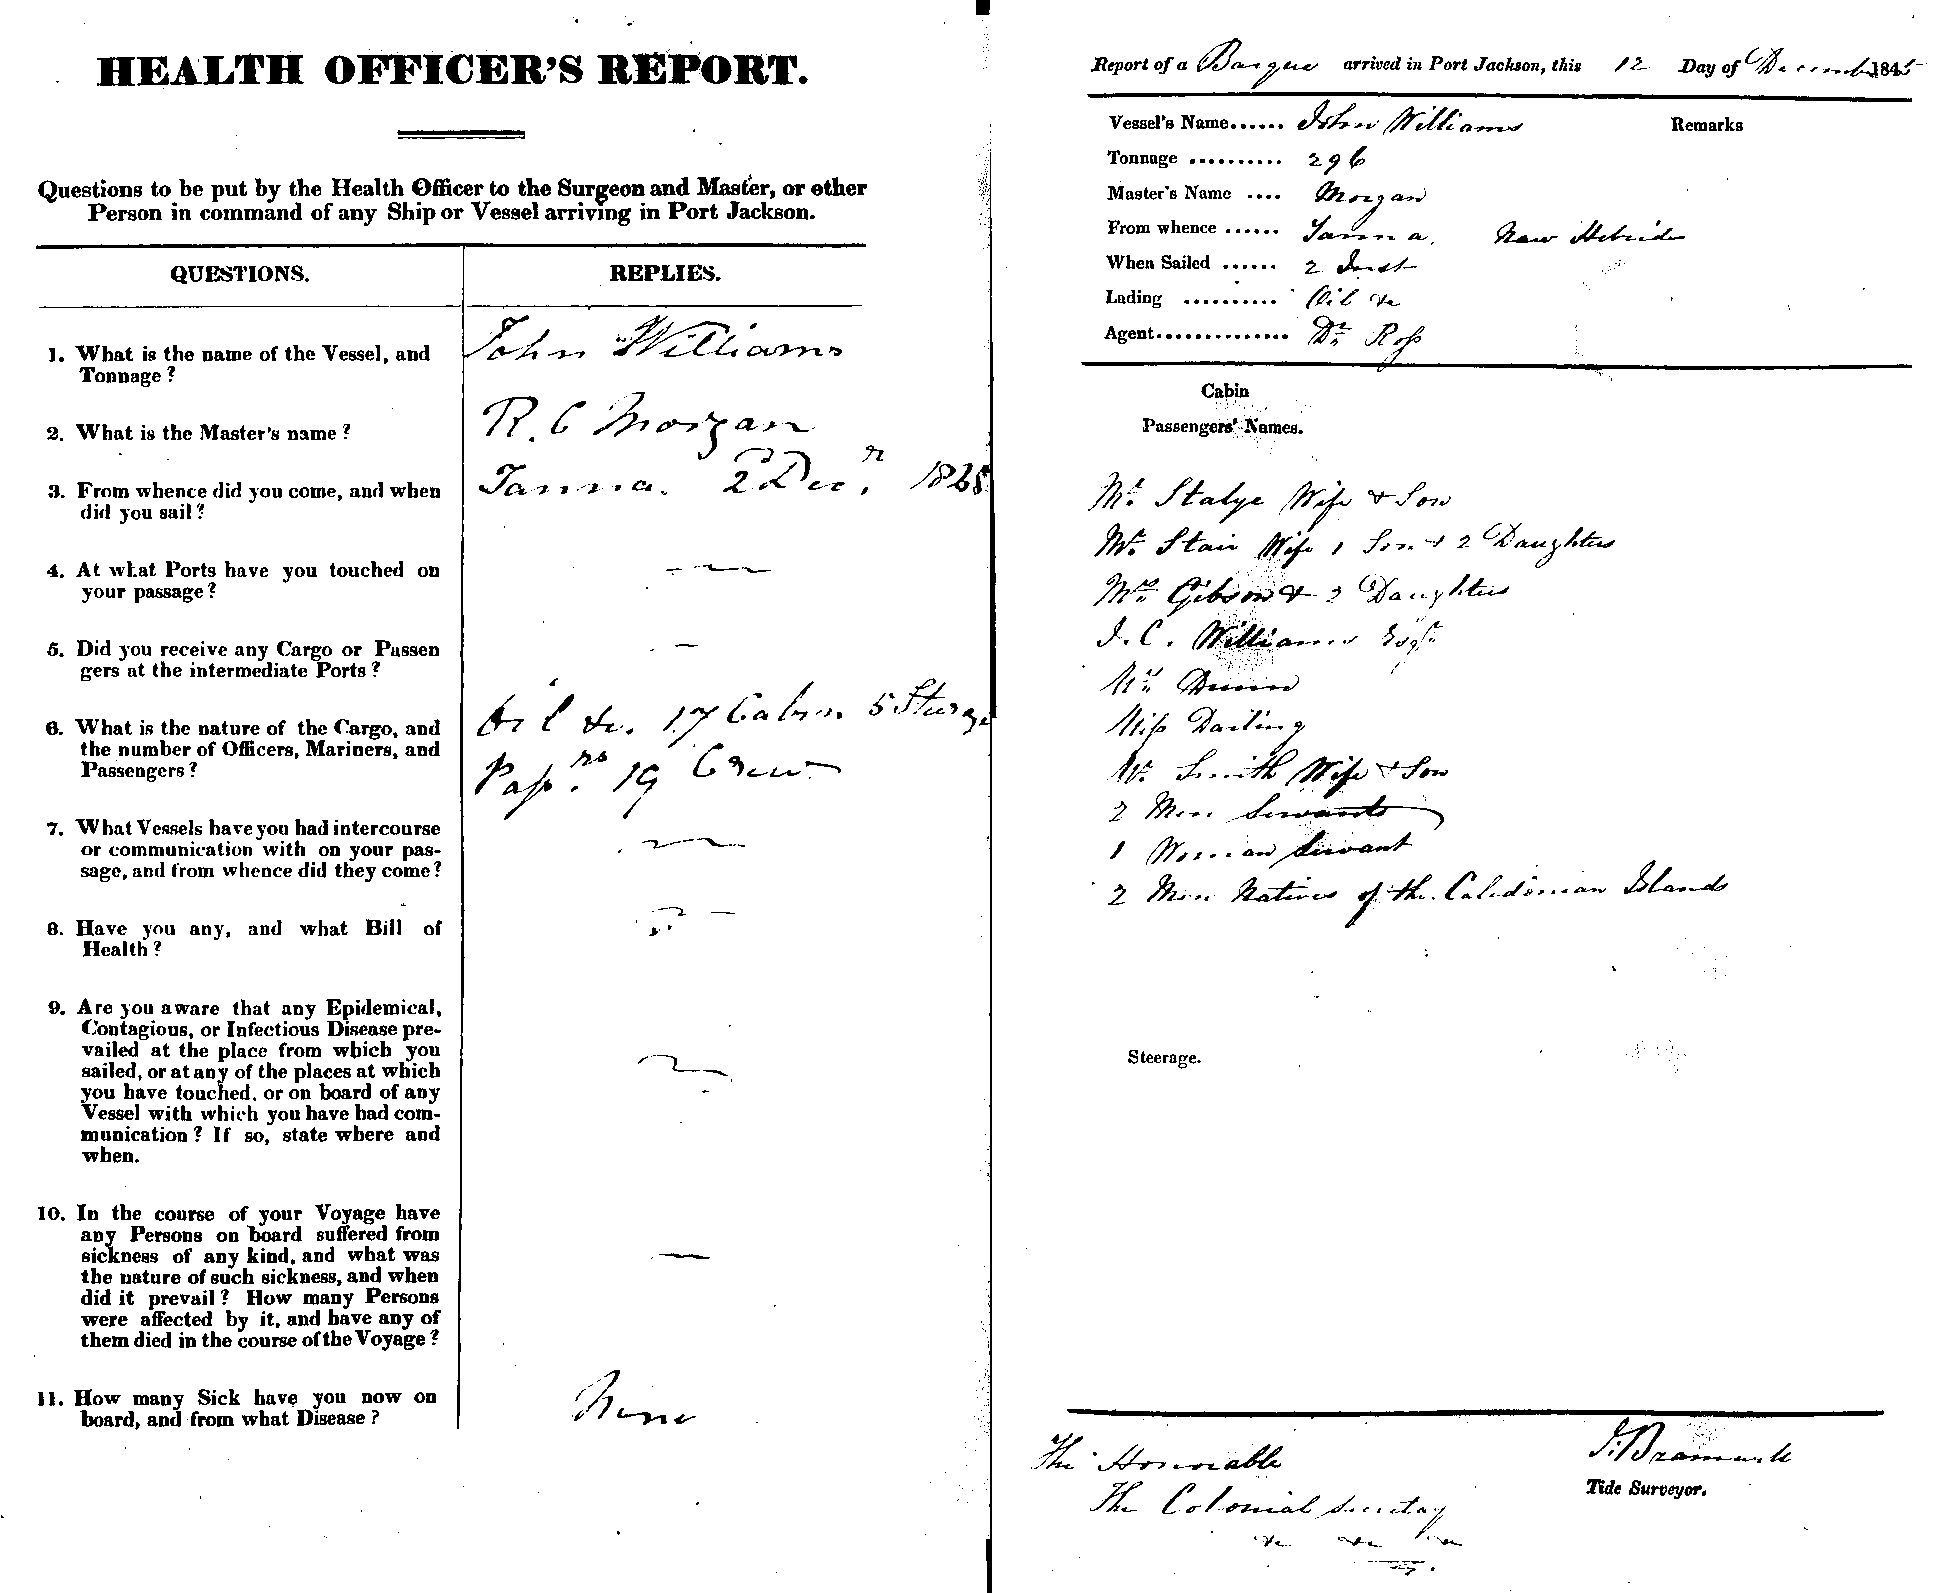 HEALTH OFFICER'S REPORT.
Questions to be put by the Health Officer to the Surgeon and Master, or other
Person in command of any Ship or Vessel arriving in Port Jackson.
QUESTIONS.
REPLIES.
1. What is the name of the Vessel, and
Tonnage?
John Williams
2. What is the Master's name?
R. C Morgan
3. From whence did you come, and when
did you sail?
Tanna. 2 Decr. 1845
4. At what Ports have you touched on
your passage?
5. Did you receive any Cargo or Passen
gers at the intermediate Ports?
6. What is the nature of the Cargo, and
the number of Officers, Mariners, and
Passengers?
Oil &c. 17 Cabin 5 Sturge
Passrs. 19 Crew
7. What Vessels have you had intercourse
or communication with on your pas-
sage, and from whence did they come?
8. Have you any, and what Bill of
Health?
9. Are you aware that any Epidemical,
Contagious, or Infectious Disease pre-
vailed at the place from which you
sailed, or at any of the places at which
you have touched, or on board of any
Vessel with which you have had com-
munication? If so, state where and
when.
10. In the course of your Voyage have
any Persons on board suffered from
sickness of any kind, and what was
the nature of such sickness, and when
did it prevail? How many Persons
were affected by it, and have any of
them died in the course of the Voyage?
11. How many Sick have you now on
board, and from what Disease?
None
Report of a Barque arrived in Port Jackson, this 12 Day of December 1845
Vessel's Name...... John Williams Remarks
Tonnage .......... 296
Master's Name .... Morgan
From whence ...... Tanna. New Hebrides
When Sailed ...... 2 Inst
Lading .......... Oil &c
Agent.............. Dr. Ross
Cabin
Passengers' Names.
Mr. Wife & Son
Mr. Stair Wife 1 Son & 2 Daughters
Mrs. Gibson & 2 Daughters
J. C. Williams Esqr.
Mr. Dunn
Miss Darling
Mr. Smith Wife & Son
2 Men Servants
1 Woman Servant
2 Men Natives of the Caledonian Islands
Steerage.
The Honorable
The Colonial Secretary
&c &c &c
J. Bramwell
Tide Surveyor.